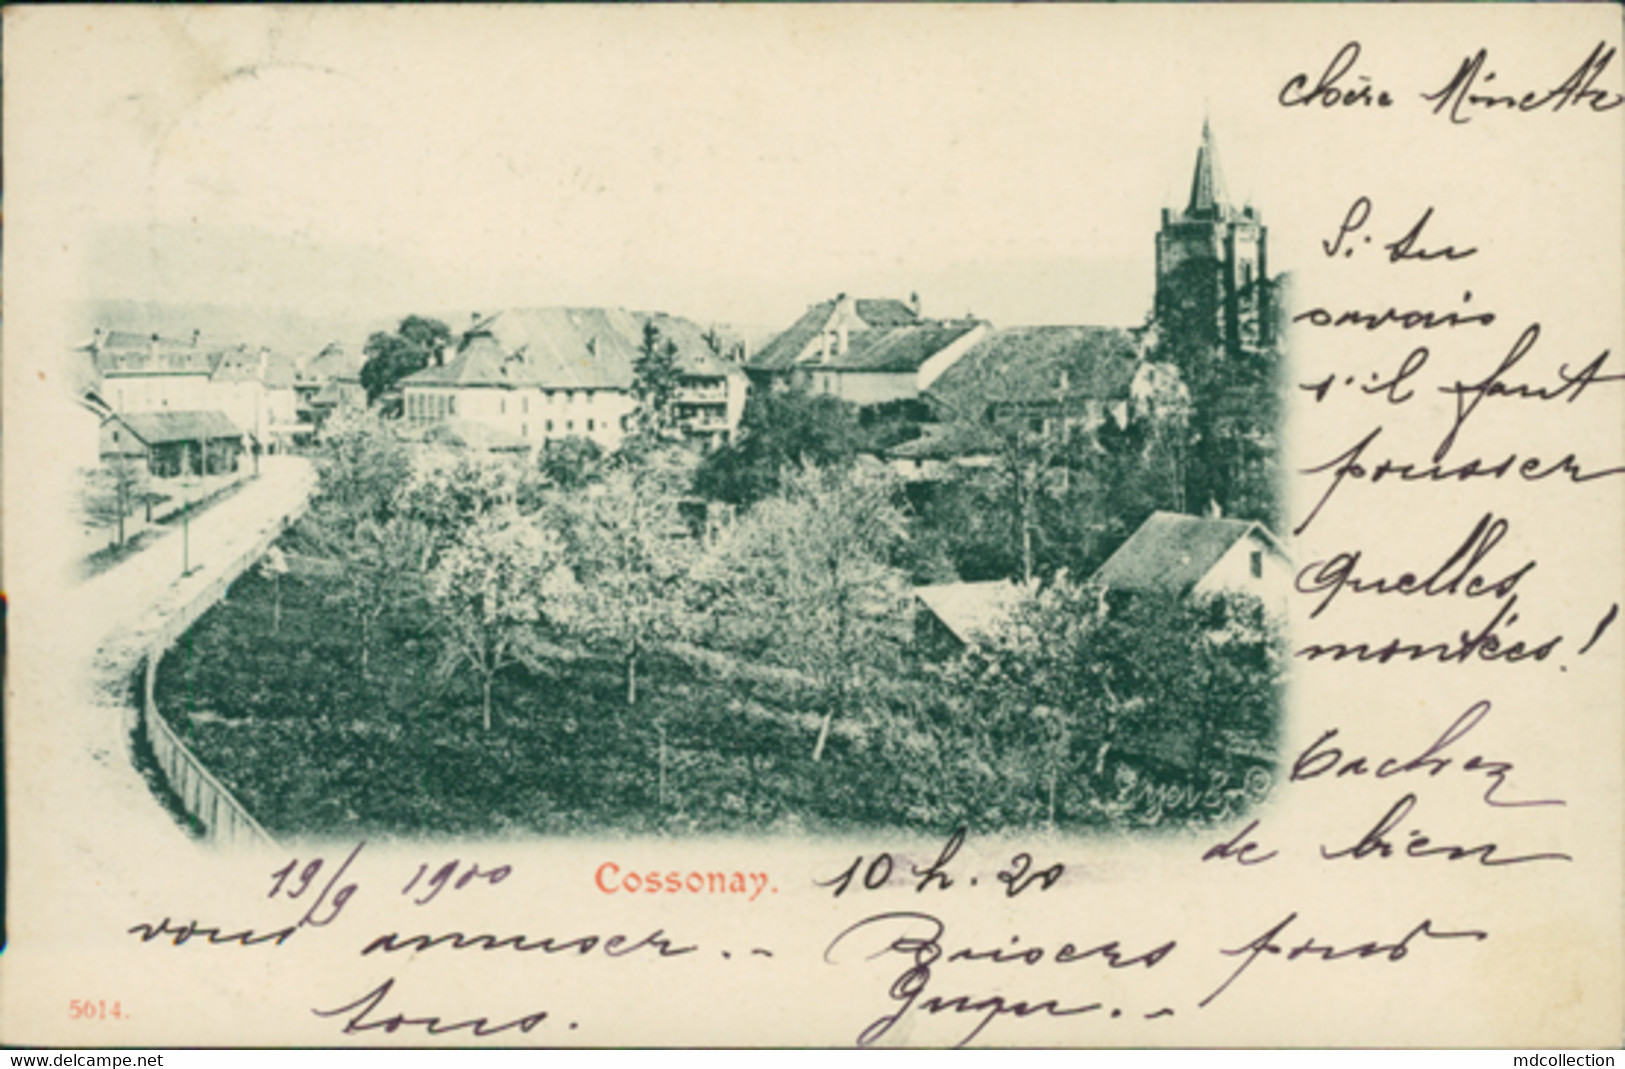 chère Minette
Si tu
savais
s'il faut
pousser
quelles
montées!
Tachez
de bien
19/9 1900
Cossonay.
10 h. 20
vous amuser..
Baisers pour
tous.
5614.
delcampe.net
mdcollection